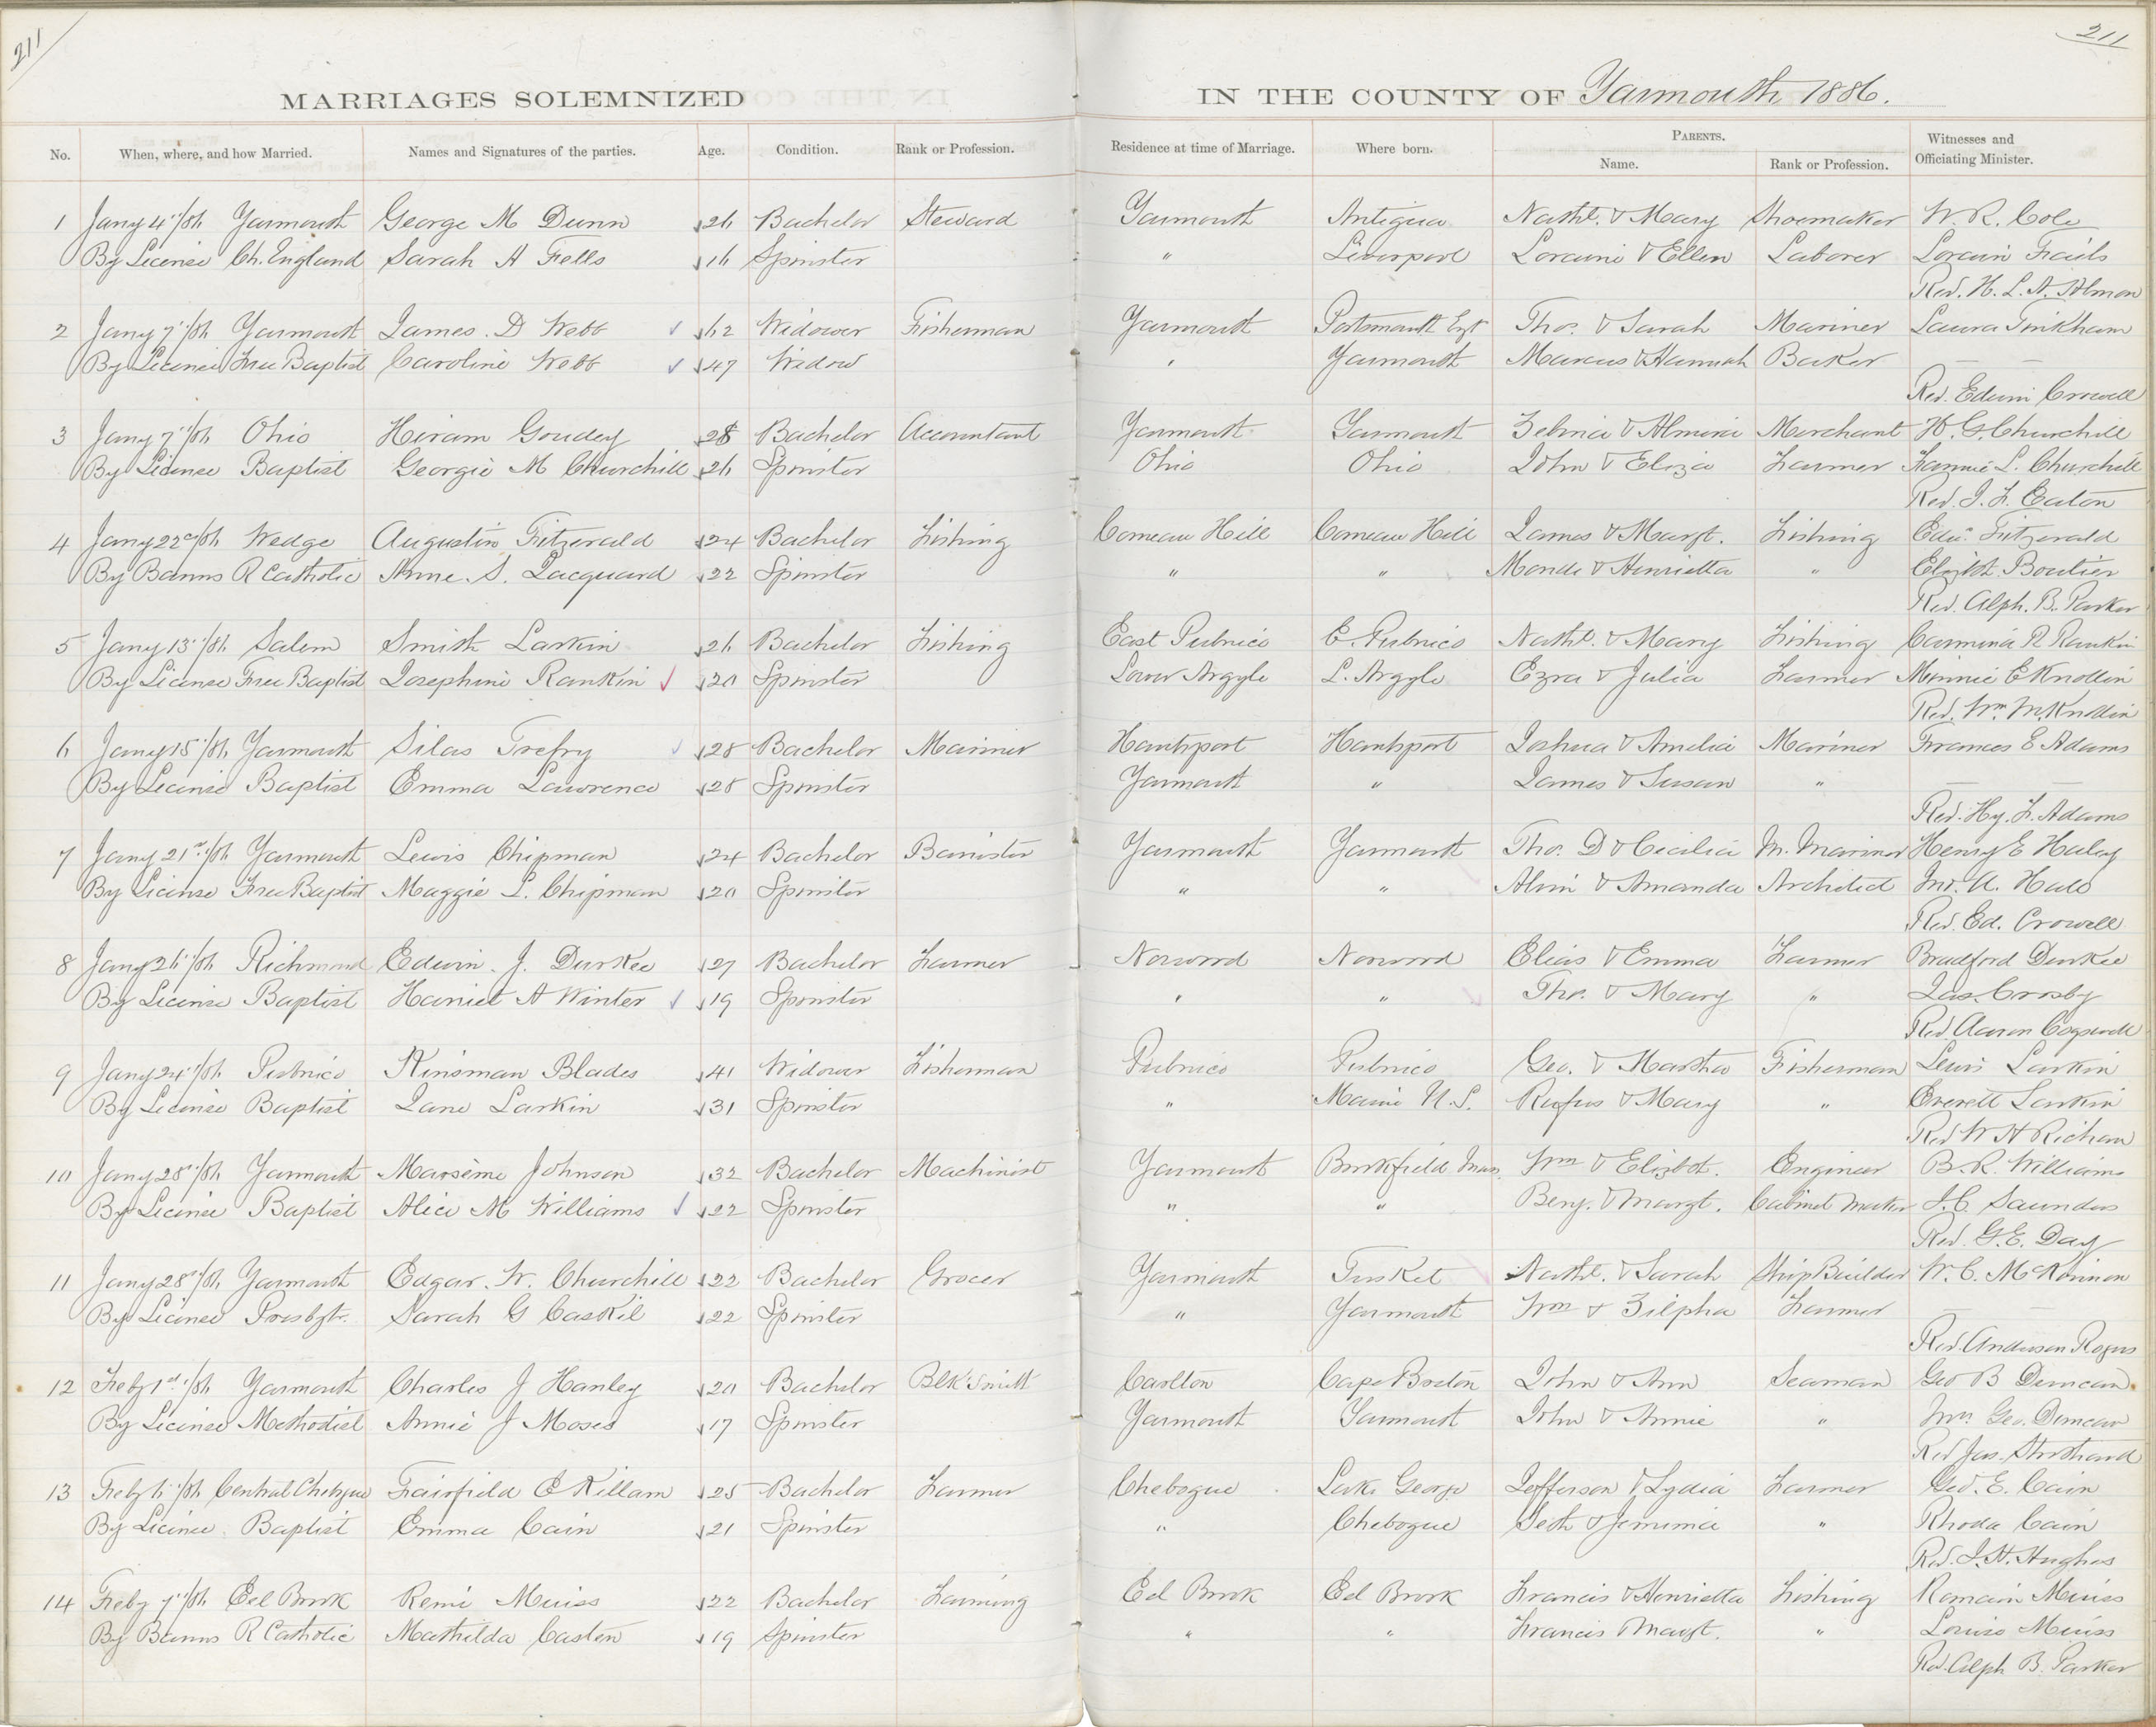 211
211
MARRIAGES SOLEMNIZED IN THE COUNTY OF Yarmouth 1886.
No. When, where, and how Married. Names and Signatures of the parties. Age. Condition. Rank or Profession. Residence at time of Marriage. Where born. PARENTS. Name. Rank or Profession. Witnesses and Officiating Minister.
1 Jany 4"/86 Yarmouth George M Dunn 26 Bachelor Steward Yarmouth Antigua Nathl. & Mary Shoemaker W. R. Cole
By License Ch. England Sarah A Fells 16 Spinster " Liverpool Loraine & Ellen Laborer Lorain Frails
Rev. H. L. A. Almon
2 Jany 7"/86 Yarmouth James. D Webb 62 Widower Fisherman Yarmouth Portsmouth Engt Thos. & Sarah Mariner Laura Tinkham
By License Free Baptist Caroline Webb 47 Widow " Yarmouth Marcus & Hannah Baker —
Rev. Edwin Crowell
3 Jany 7"/86 Ohio Hiram Goudey 28 Bachelor Accountant Yarmouth Yarmouth Zebina & Almira Merchant H. G. Churchill
By License Baptist Georgie M Churchill 26 Spinster Ohio Ohio John & Eliza Farmer Fannie L. Churchill
Rev. J. F. Eaton
4 Jany 22d/86 Wedge Augustin Fitzerald 24 Bachelor Fishing Comeau Hill Comeau Hill James & Margt. Fishing Edw. Fitzerald
By Banns R Catholic Anne. S. Jacquard 22 Spinster " " Monde & Henrietta " Elizbt. Boutier
Rev. Alph. B. Parker
5 Jany 13"/86 Salem Smith Larkin 26 Bachelor Fishing East Pubnico E. Pubnico Nathl. & Mary Fishing Carmina R Rankin
By License Free Baptist Josephine Rankin 20 Spinster Lower Argyle L. Argyle Ezra & Julia Farmer Minnie E Knollin
Rev. Wm. M. Knollin
6 Jany 15"/86 Yarmouth Silas Trefry 28 Bachelor Mariner Hantsport Hantsport Joshua & Amelia Mariner Frances E Adams
By License Baptist Emma Lawrence 28 Spinster Yarmouth " James & Susan " —
Rev. Hy. F. Adams
7 Jany 21st/86 Yarmouth Lewis Chipman 24 Bachelor Barrister Yarmouth Yarmouth Thos. D & Cecilia M. Mariner Henry E Haley
By License Free Baptist Maggie L. Chipman 20 Spinster " " Alvin & Amanda Architect Jno. A. Hall
Rev. Ed. Crowell
8 Jany 26/86 Richmond Edwin. J. Durkee 27 Bachelor Farmer Norwood Norwood Elias & Emma Farmer Bradford Durkee
By License Baptist Harriet A Winter 19 Spinster " " Thos. & Mary " Jas. Crosby
Rev Aaron Cogswell
9 Jany 24"/86 Pubnico Kinsman Blades 41 Widower Fisherman Pubnico Pubnico Geo. & Martha Fisherman Lewis Larkin
By License Baptist Jane Larkin 31 Spinster " Maine U.S. Rufus & Mary " Everett Larkin
Rev W H Richan
10 Jany 28"/86 Yarmouth Marseme Johnson 32 Bachelor Machinist Yarmouth Brookfield Mass. Wm & Elizbt. Engineer B. R. Williams
By License Baptist Alice M Williams 22 Spinster " " Benj. & Margt. Cabinet Maker J. C. Saunders
Rev. G. E. Day
11 Jany 28"/86 Yarmouth Edgar. W. Churchill 22 Bachelor Grocer Yarmouth Tusket Nathl. & Sarah Ship Builder W. C. McKinnon
By License Presbyt. Sarah G Caskil 22 Spinster " Yarmouth Wm & Zilpha Farmer —
Rev. Anderson Rogers
12 Feby 1st/86 Yarmouth Charles J Hanley 20 Bachelor Blk Smith Carlton Cape Breton John & Ann Seaman Geo B Duncan
By License Methodist Annie J Moses 17 Spinster Yarmouth Yarmouth John & Annie " Mrs. Geo. Duncan
Rev Jas. Strothard
13 Feby 6"/86 Central Chebogue Fairfield C Killam 25 Bachelor Farmer Chebogue Lake George Jefferson & Lydia Farmer Geo. E. Cain
By License Baptist Emma Cain 21 Spinster " Chebogue Seth & Jemima " Rhoda Cain
Rev. J. H. Hughes
14 Feby 7"/86 Eel Brook Remi Muiss 22 Bachelor Farming Eel Brook Eel Brook Francis & Henrietta Fishing Romain Muiss
By Banns R Catholic Mathilda Casten 19 Spinster " " Francis Margt. " Louise Muiss
Rev. Alph B. Parker